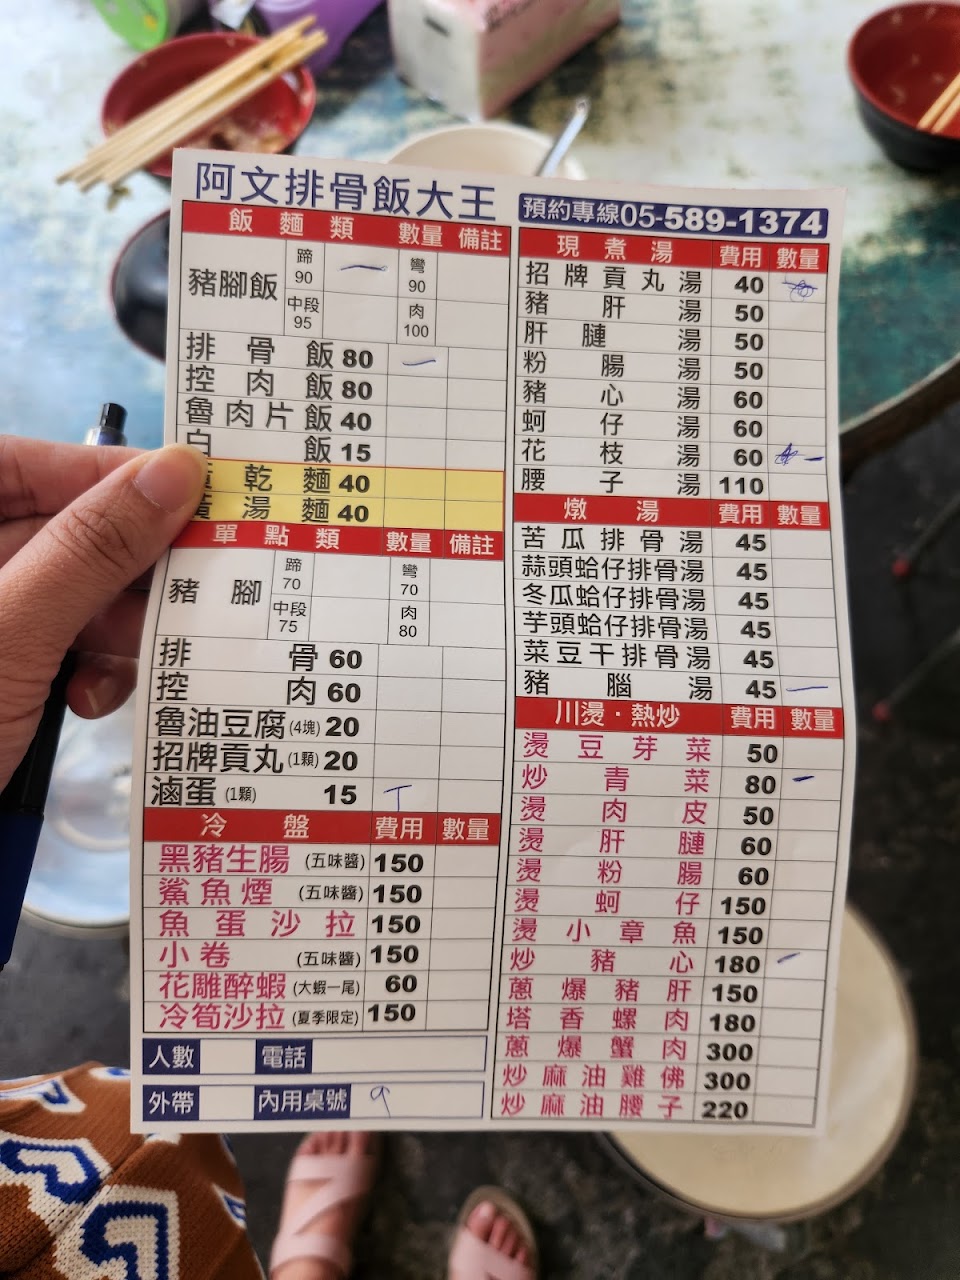 阿文排骨飯大王
飯麵類 數量 備註
豬腳飯 蹄 90 彎 90
中段 95 肉 100
排骨飯 80
控肉飯 80
魯肉片飯 40
白飯 15
乾麵 40
湯麵 40
單點類 數量 備註
豬腳 蹄 70 彎 70
中段 75 肉 80
排骨 60
控肉 60
魯油豆腐(4塊) 20
招牌貢丸(1顆) 20
滷蛋(1顆) 15
冷盤 費用 數量
黑豬生腸(五味醬) 150
鯊魚煙(五味醬) 150
魚蛋沙拉 150
小卷(五味醬) 150
花雕醉蝦(大蝦一尾) 60
冷筍沙拉(夏季限定) 150
人數 電話
外帶 內用桌號 9
預約專線05-589-1374
現煮湯 費用 數量
招牌貢丸湯 40
豬肝湯 50
肝腱湯 50
粉腸湯 50
豬心湯 60
蚵仔湯 60
花枝湯 60
腰子湯 110
燉湯 費用 數量
苦瓜排骨湯 45
蒜頭蛤仔排骨湯 45
冬瓜蛤仔排骨湯 45
芋頭蛤仔排骨湯 45
菜豆干排骨湯 45
豬腦湯 45
川燙·熱炒 費用 數量
燙豆芽菜 50
炒青菜 80
燙肉皮 50
燙肝腱 60
燙粉腸 60
燙蚵仔 150
燙小章魚 150
炒豬心 180
蔥爆豬肝 150
塔香螺肉 180
蔥爆蟹肉 300
炒麻油雞佛 300
炒麻油腰子 220